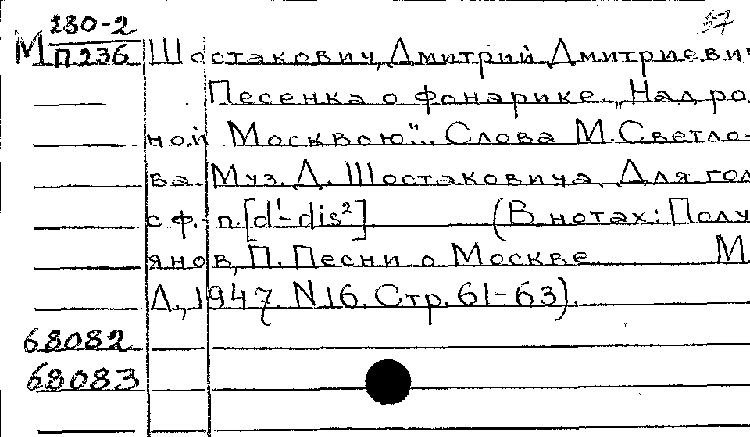 57
М 280-2
П236 Шостакович, Дмитрий Дмитриевич
Песенка о фонарике. „Над род
ной Москвою". Слова М. Светло-
ва. Муз. Д. Шостаковича. Для гол
с ф.-п. [d¹-dis²]. (В нотах: Полу
янов, П. Песни о Москве М
Л., 1947. N 16. Стр. 61-63).
68082
68083